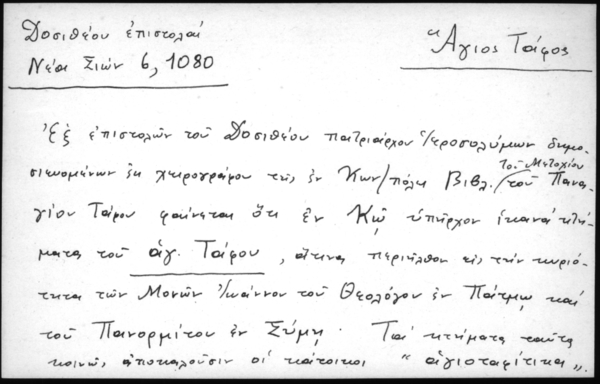 Δοσιθέου ἐπιστολαί
Νέα Σιών 6, 1080
Ἅγιος Τάφος
Ἐξ ἐπιστολῶν τοῦ Δοσιθέου πατριάρχου Ἱεροσολύμων δημο-
σιευομένων ἐκ χειρογράφου τῆς ἐν Κων/πόλει Βιβλ. τοῦ Μετοχίου τοῦ Πανα-
γίου Τάφου φαίνεται ὅτι ἐν Κῷ ὑπῆρχον ἱκανά κτή-
ματα τοῦ ἁγ. Τάφου, ἅτινα περιῆλθον εἰς τήν κυριό-
τητα τῶν Μονῶν Ἰωάννου τοῦ Θεολόγου ἐν Πάτμῳ καί
τοῦ Πανορμίτου ἐν Σύμῃ. Τά κτήματα ταῦτα
κοινῶς ἀποκαλοῦσιν οἱ κάτοικοι "ἁγιοταφίτικα".